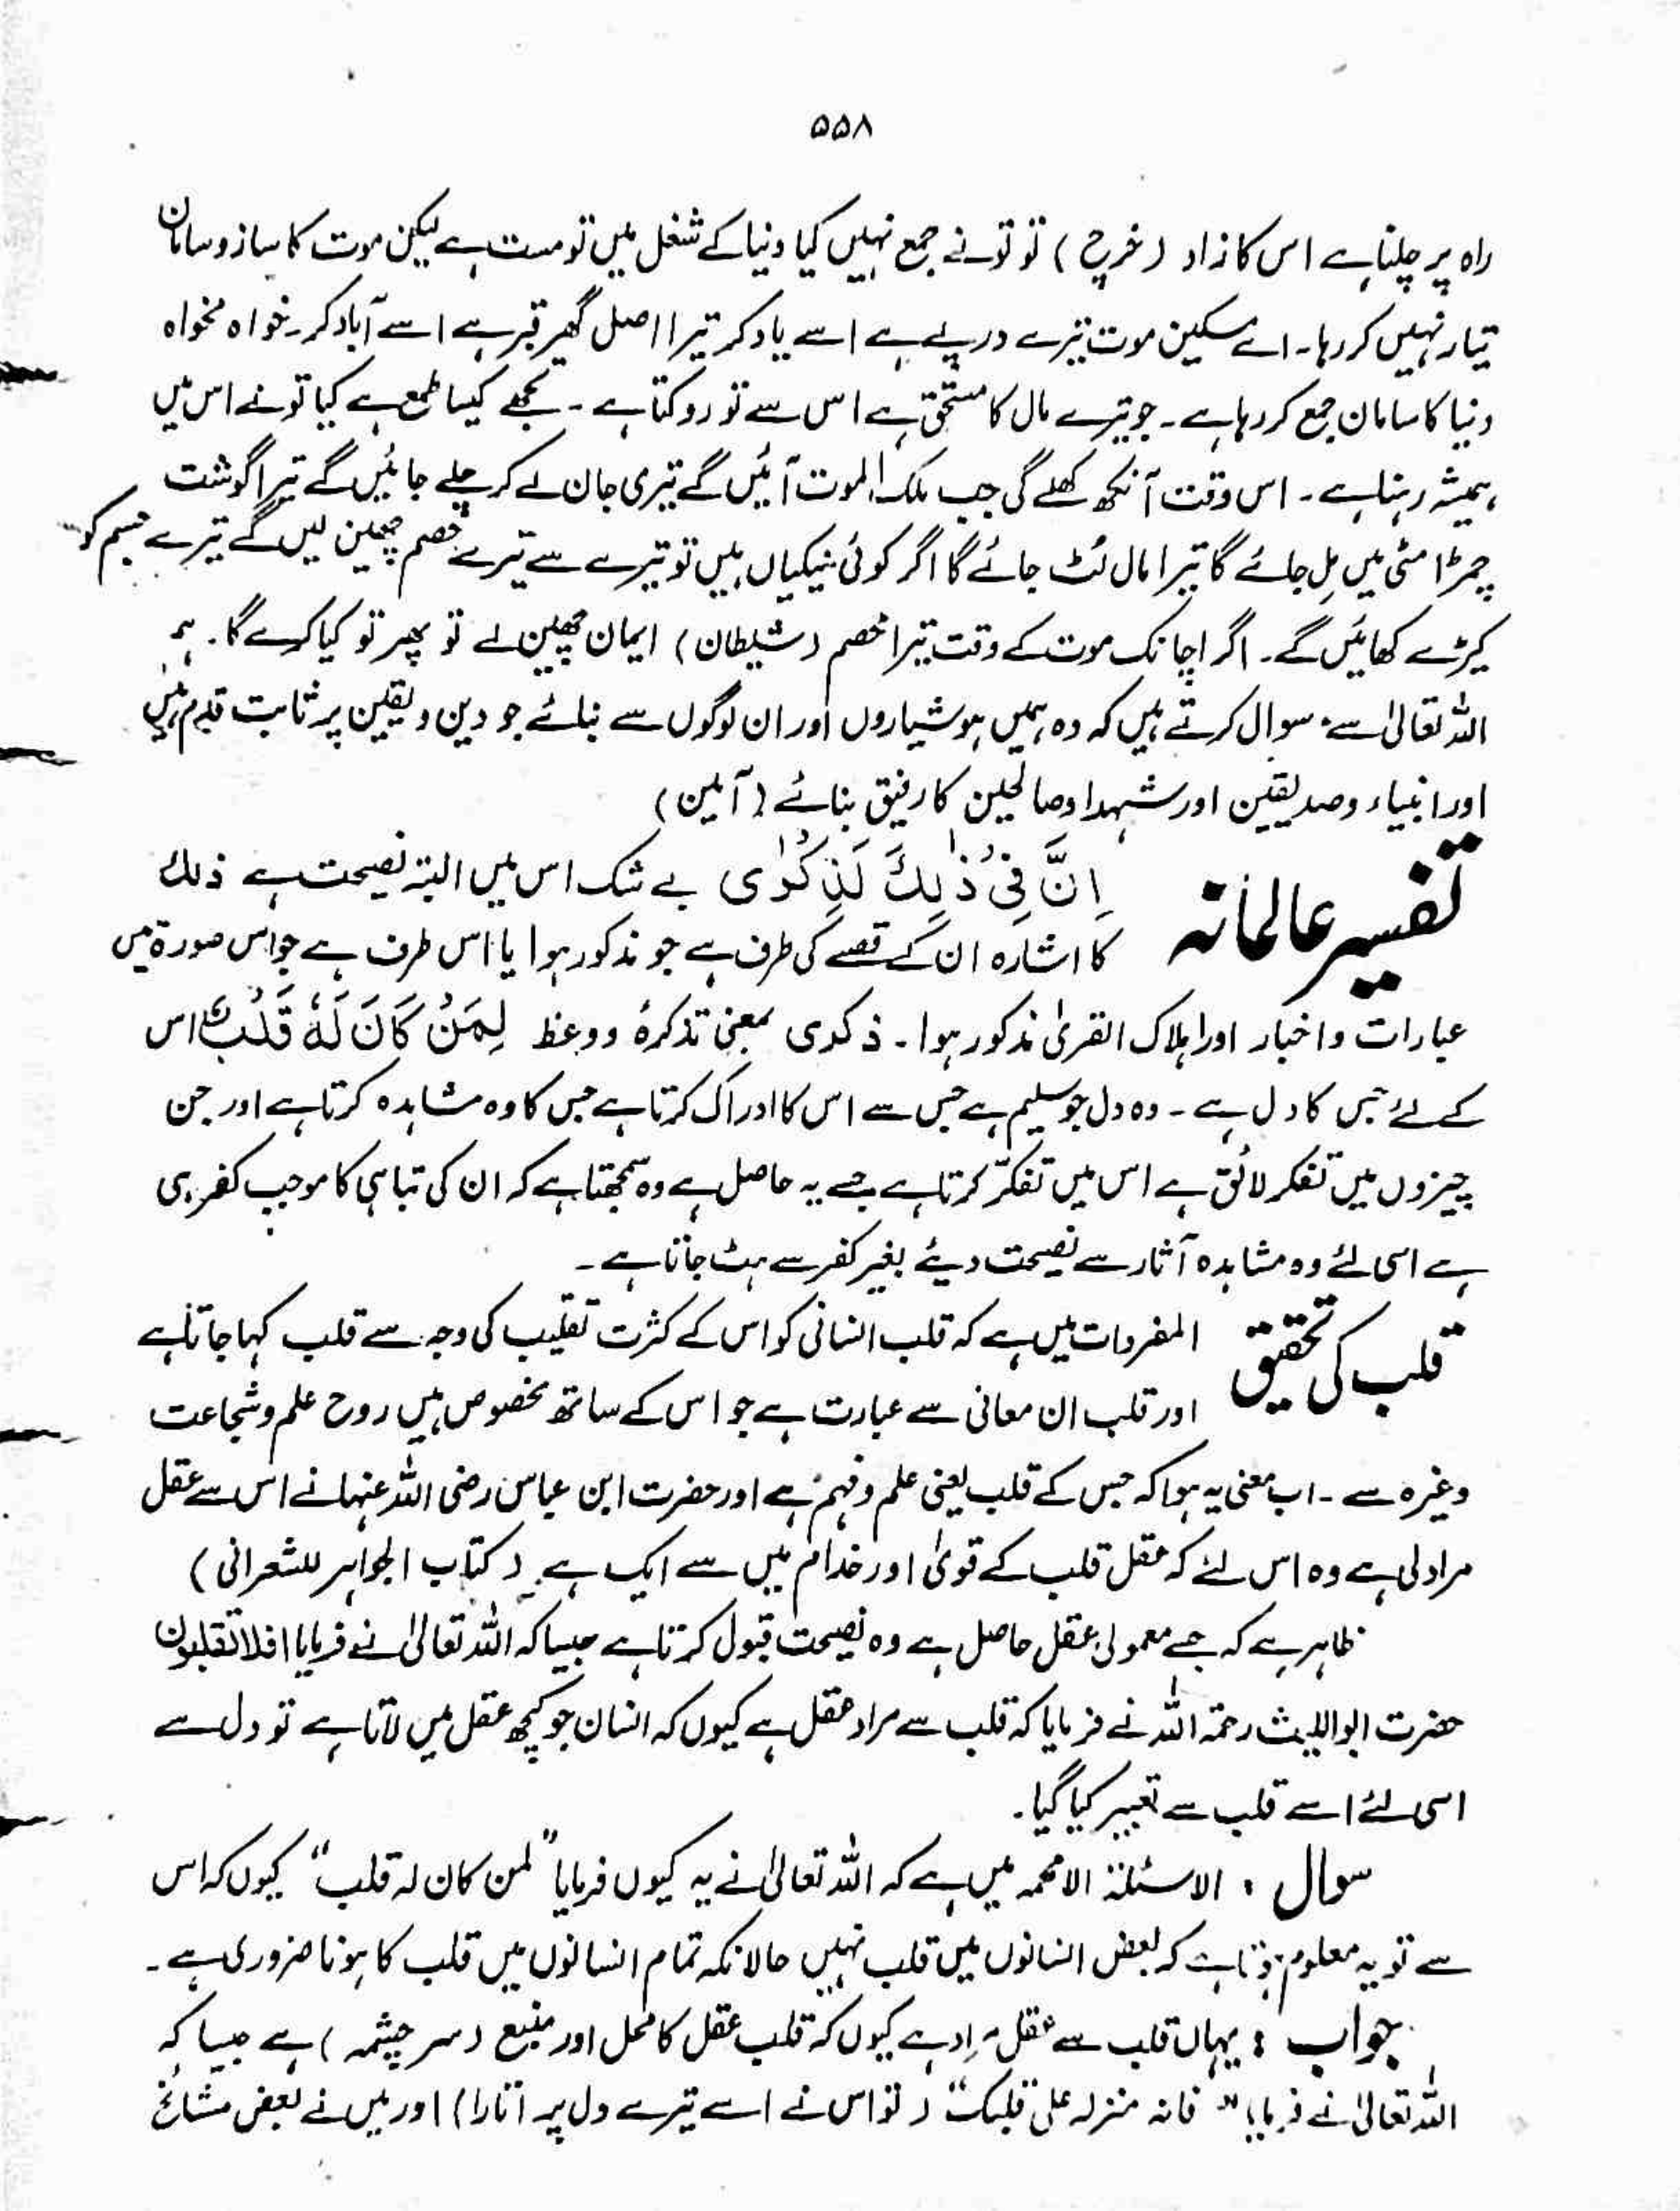 ۵۵۸
راہ پر چلنا ہے اس کا زاد (خرچ) تو تو نے جمع نہیں کیا دنیا کے شغل میں تو مست ہے لیکن موت کا ساز و سامان
تیار نہیں کر رہا۔ اے مسکین موت تیرے درپے ہے اسے یاد کر تیرا اصل گھر قبر ہے اسے آباد کر۔ خواہ مخواہ
دنیا کا سامان جمع کر رہا ہے۔ جو تیرے مال کا مستحق ہے اس سے تو روکتا ہے۔ تجھے کیسا طمع ہے کیا تو نے اس میں
ہمیشہ رہنا ہے۔ اس وقت آنکھ کھلے گی جب ملک الموت آئیں گے تیری جان لے کر چلے جائیں گے تیرا گوشت
چمڑا مٹی میں مل جائے گا تیرا مال لُٹ جائے گا اگر کوئی نیکیاں ہیں تو تیرے سے تیرے خصم چھین لیں گے تیرے جسم کو
کیڑے کھائیں گے۔ اگر اچانک موت کے وقت تیرا خصم (شیطان) ایمان چھین لے تو پھر تو کیا کرے گا۔ ہم
اللہ تعالیٰ سے سوال کرتے ہیں کہ وہ ہمیں ہوشیاروں اور ان لوگوں سے بنائے جو دین و یقین پر ثابت قدم ہیں
اور انبیاء و صدیقین اور شہدا و صالحین کا رفیق بنائے (آمین)
تفسیر عالمانہ
اِنَّ فِیْ ذٰلِكَ لَذِكْرٰی بے شک اس میں البتہ نصیحت ہے ذلک
کا اشارہ ان کے قصے کی طرف ہے جو مذکور ہوا یا اس طرف ہے جو اس صورۃ میں
عبارات و اخبار اور اہلاک القریٰ مذکور ہوا۔ ذکری بمعنی تذکرۂ و وعظ لِمَنْ كَانَ لَهٗ قَلْبٌ اس
کے لئے جس کا دل ہے۔ وہ دل جو سلیم ہے جس سے اس کا ادراک کرتا ہے جس کا وہ مشاہدہ کرتا ہے اور جن
چیزوں میں تفکر لائق ہے اس میں تفکّر کرتا ہے جسے یہ حاصل ہے وہ سمجھتا ہے کہ ان کی تباہی کا موجب کفر ہی
ہے اسی لئے وہ مشاہدہ آثار سے نصیحت دیئے بغیر کفر سے ہٹ جاتا ہے۔
قلب کی تحقیق
المفردات میں ہے کہ قلب انسانی کو اس کے کثرت تقلیب کی وجہ سے قلب کہا جاتا ہے
اور قلب ان معانی سے عبارت ہے جو اس کے ساتھ مخصوص ہیں روح علم و شجاعت
وغیرہ سے۔ اب معنی یہ ہوا کہ جس کے قلب یعنی علم و فہم ہے اور حضرت ابن عباس رضی اللہ عنہما نے اس سے عقل
مراد لی ہے وہ اس لئے کہ عقل قلب کے قویٰ اور خدام میں سے ایک ہے۔ (کتاب الجواہر للشعرانی)
ظاہر ہے کہ جسے معمولی عقل حاصل ہے وہ نصیحت قبول کرتا ہے جیسا کہ اللہ تعالیٰ نے فرمایا افلا تعقلون
حضرت ابو اللیث رحمۃ اللہ نے فرمایا کہ قلب سے مراد عقل ہے کیوں کہ انسان جو کچھ عقل میں لاتا ہے تو دل سے
اسی لئے اسے قلب سے تعبیر کیا گیا۔
سوال : الاسئلۃ الامحمہ میں ہے کہ اللہ تعالیٰ نے یہ کیوں فرمایا "لمن کان لہ قلب" کیوں کہ اس
سے تو یہ معلوم ہوتا ہے کہ بعض انسانوں میں قلب نہیں حالانکہ تمام انسانوں میں قلب کا ہونا ضروری ہے۔
جواب : یہاں قلب سے عقل مراد ہے کیوں کہ قلب عقل کا محل اور منبع (سرچشمہ) ہے جیسا کہ
اللہ تعالیٰ نے فرمایا "فانہ منزلہ علی قلبک" (تو اس نے اسے تیرے دل پر اتارا) اور میں نے بعض مشائخ